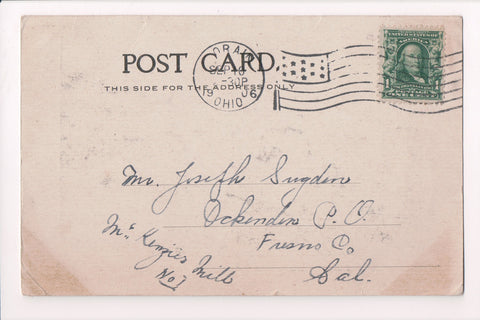 POST CARD.
THIS SIDE FOR THE ADDRESS ONLY
LORAIN
SEP 10
-30P
1906
OHIO
Mr. Joseph Sugden
Ockenden P. O.
Fresno Co.
Cal.
McKenzies Mill
No 1